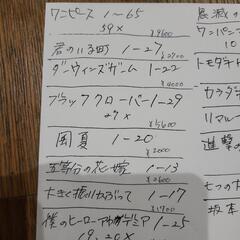 ワンピース 1〜65
59×
¥9600
君のいる町 1-27
¥2700
ダーウィンズゲーム 1-22
¥4000
ブラッククローバー1-29
27×
¥5600
風夏 1-20
¥2000
五等分の花嫁 1-13
¥2600
大きく振りかぶって 1-17
¥1700
僕のヒーローアカデミア 1-25
19,20×
ワンパンマ
10
トモダチ
カラダ
リマル
進撃の
七つの大
坂本